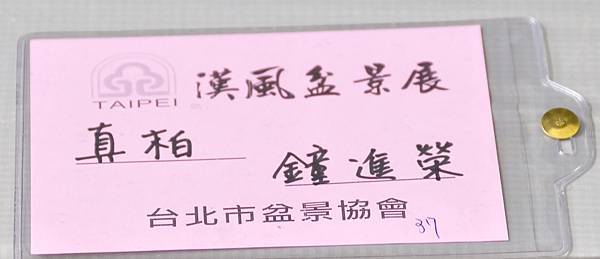 漢風盆景展
TAIPEI
真柏
鐘進榮
台北市盆景協會
37